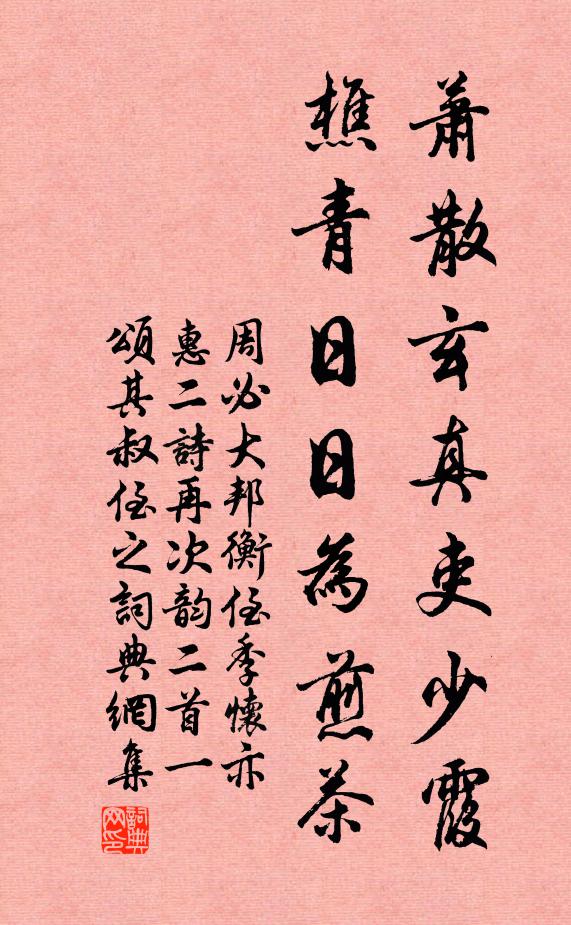 蕭散玄真吏少霞
樵青日日為煎茶
周必大邦衡侄季懷亦
惠二詩再次韵二首一
頌其叔侄之詞典網集
詞典
网印